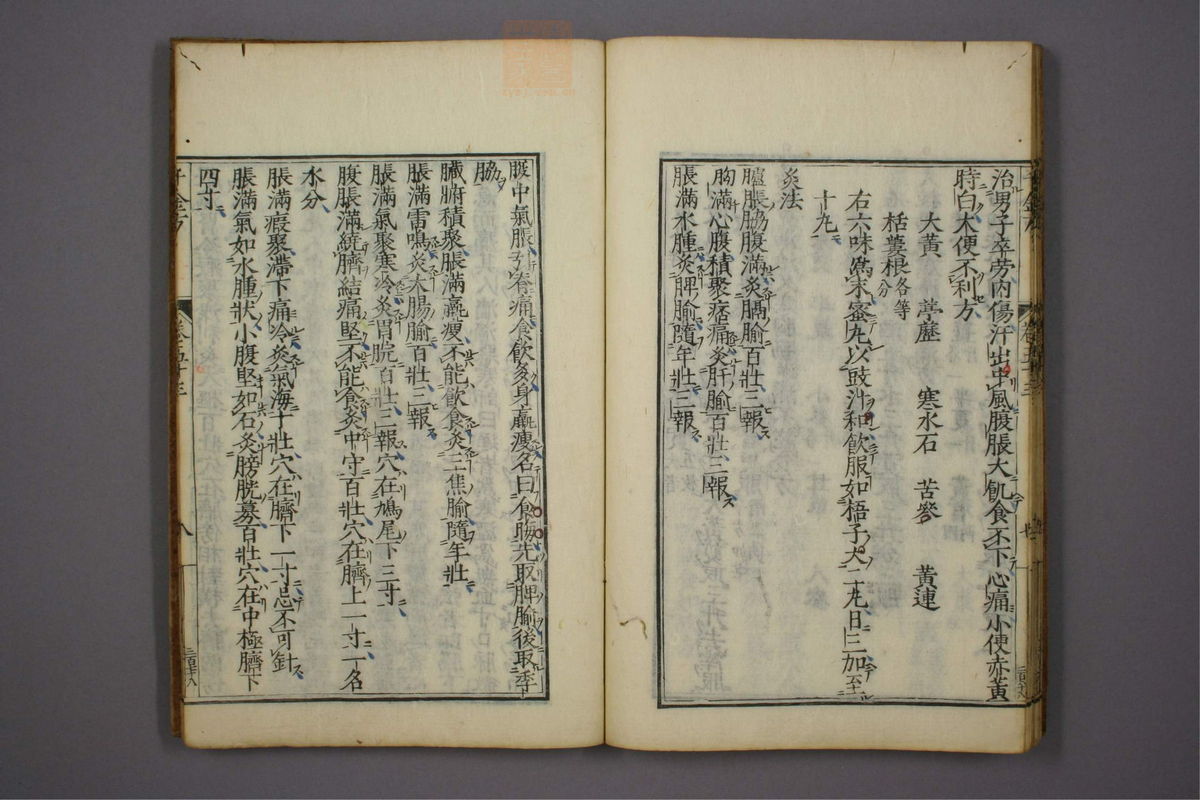 治男子卒勞内傷汗出中風腹脹大飢食不下心痛小便赤黄
時白大便不利方
大黄 葶藶 寒水石 苦參 黄連
栝蔞根各等分
右六味爲末蜜丸以豉汁和飲服如梧子大一十丸日三加至二
十丸
灸法
臚脹脇腹滿灸膈腧百壯三報
胸滿心腹積聚痞痛灸肝腧百壯三報
脹滿水腫灸脾腧隨年壯三報
脹中氣脹引脊痛食飲多身羸瘦名曰食晦先取脾腧後取季
脇
臟腑積聚脹滿羸瘦不能飲食灸三焦腧隨年壯
脹滿雷鳴灸大腸腧百壯三報
脹滿氣聚寒冷灸胃脘百壯三報穴在鳩尾下三寸
腹脹滿繞臍結痛堅不能食灸中守百壯穴在臍上一寸一名
水分
脹滿瘕聚滯下痛冷灸氣海千壯穴在臍下一寸忌不可針
脹滿氣如水腫狀小腹堅如石灸膀胱募百壯穴在中極臍下
四寸
千金方 卷五十三 八